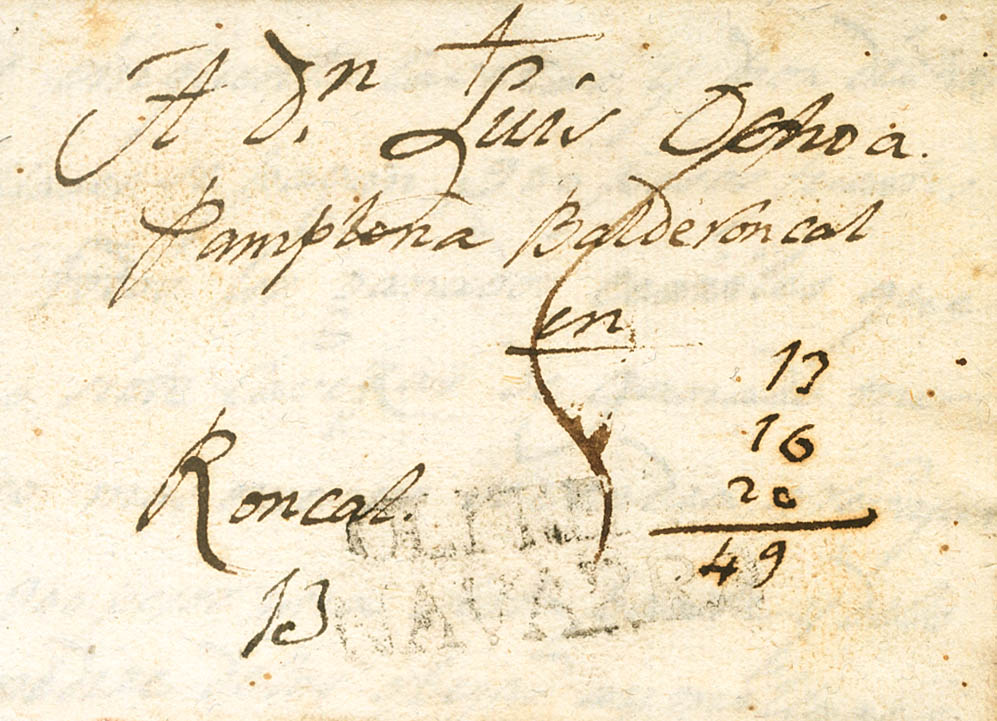 A Dn. Luis Ochoa.
Pamplona Balderoncal
en
13
16
20
49
Roncal.
13
NAVARRA